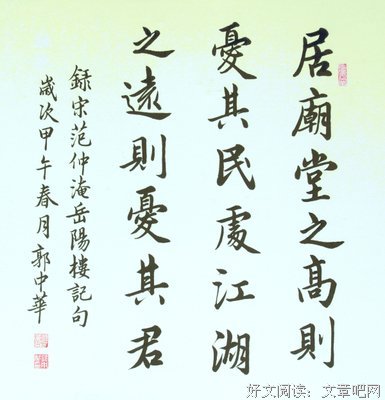 居廟堂之高則
憂其民處江湖
之遠則憂其君
録宋范仲淹岳陽樓記句
歲次甲午春月郭中華
好文阅读：文章吧网